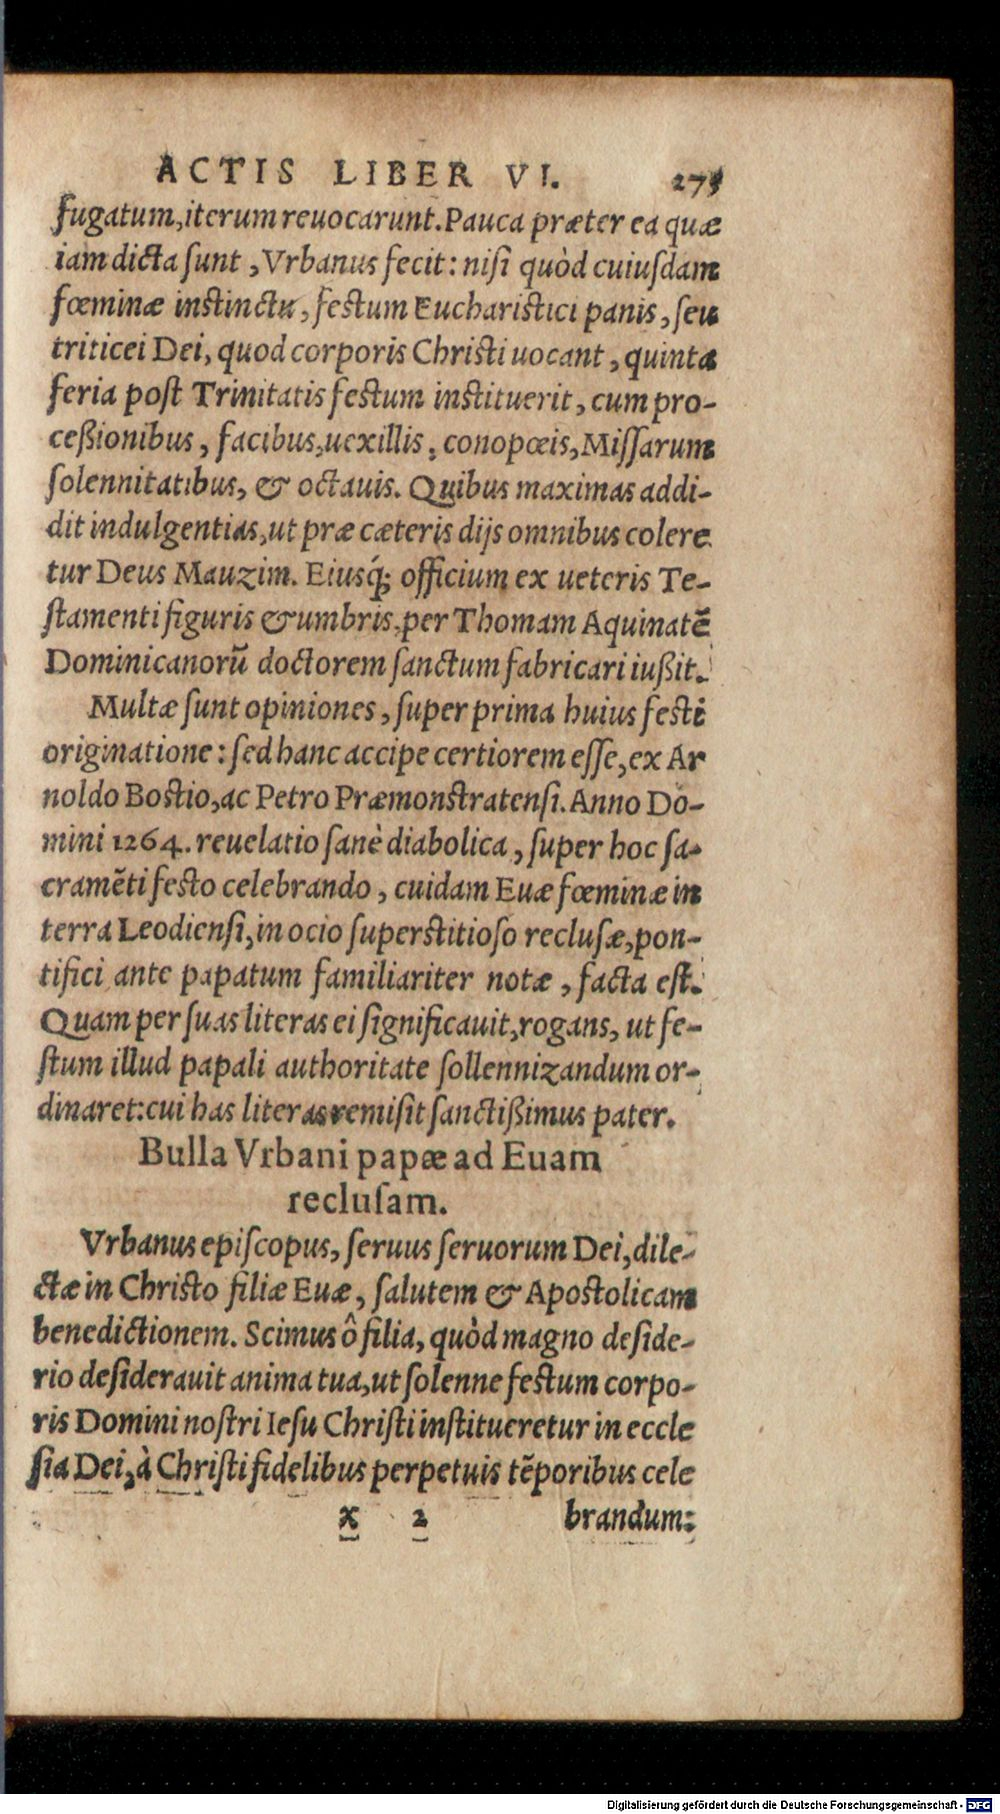 ACTIS LIBER VI. 275
fugatum, iterum reuocarunt. Pauca præter ea quæ
iam dicta sunt, Vrbanus fecit: nisi quòd cuiusdam
fœminæ instinctu, festum Eucharistici panis, seu
triticei Dei, quod corporis Christi uocant, quinta
feria post Trinitatis festum instituerit, cum pro-
ceßionibus, facibus, uexillis, conopœis, Missarum
solennitatibus, & octauis. Quibus maximas addi-
dit indulgentias, ut præ cæteris dijs omnibus colere
tur Deus Mauzim. Eiusq́; officium ex ueteris Te-
stamenti figuris & umbris, per Thomam Aquinatẽ
Dominicanorũ doctorem sanctum fabricari iußit.
Multæ sunt opiniones, super prima huius festi
originatione: sed hanc accipe certiorem esse, ex Ar
noldo Bostio, ac Petro Præmonstratensi. Anno Do-
mini 1264. reuelatio sanè diabolica, super hoc sa-
cramẽti festo celebrando, cuidam Euæ fœminæ in
terra Leodiensi, in ocio superstitioso reclusæ, pon-
tifici ante papatum familiariter notæ, facta est.
Quam per suas literas ei significauit, rogans, ut fe-
stum illud papali authoritate sollennizandum or-
dinaret: cui has literas remisit sanctißimus pater.
Bulla Vrbani papæ ad Euam
reclusam.
Vrbanus episcopus, seruus seruorum Dei, dile-
ctæ in Christo filiæ Euæ, salutem & Apostolicam
benedictionem. Scimus ô filia, quòd magno deside-
rio desiderauit anima tua, ut solenne festum corpo-
ris Domini nostri Iesu Christi institueretur in eccle
sia Dei, à Christi fidelibus perpetuis tẽporibus cele
x 2 brandum:
Digitalisierung gefördert durch die Deutsche Forschungsgemeinschaft - DFG